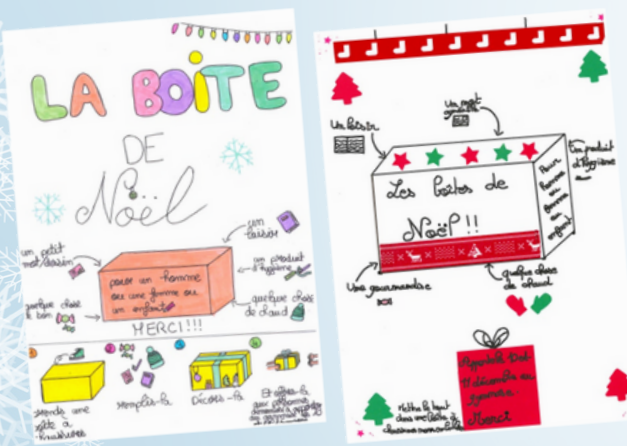 LA BOITE
DE
Noël
un
loisir
un petit
mot/dessin
un produit
d'hygiène
pour un homme
ou une femme ou
un enfant
quelque chose
de bon
quelque chose
de chaud
MERCI!!!
prends une
boîte à
chaussures
Remplis-la
Décore-la
Et offre-la
aux personnes
un mot
Un loisir
Un produit
d'hygiène
Les boîtes de
Noël !!
Pour
homme
ou
femme
ou
enfant
Une gourmandise
quelque chose
de chaud
décembre au
gymnase
Merci
Mettre le tout
dans une boîte à